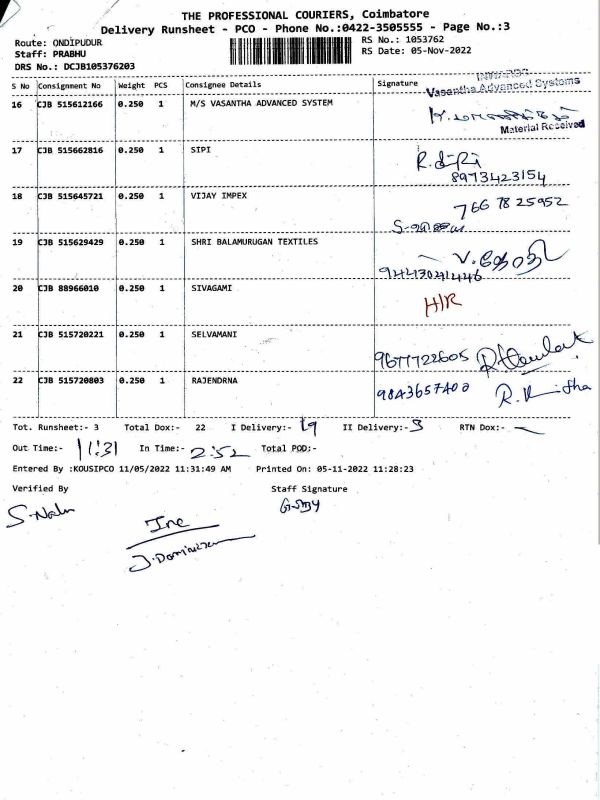 THE PROFESSIONAL COURIERS, Coimbatore
Delivery Runsheet - PCO - Phone No.:0422-3505555 - Page No.:3
Route: ONDIPUDUR
RS No.: 1053762
Staff: PRABHU
RS Date: 05-Nov-2022
DRS No.: DCJB105376203
S No Consignment No Weight PCS Consignee Details Signature
Vasantha Advanced Systems
16 CJB 515612166 0.250 1 M/S VASANTHA ADVANCED SYSTEM
Material Received
17 CJB 515662816 0.250 1 SIPI
8973423154
18 CJB 515645721 0.250 1 VIJAY IMPEX
766 78 25952
19 CJB 515629429 0.250 1 SHRI BALAMURUGAN TEXTILES
20 CJB 88966010 0.250 1 SIVAGAMI
H/R
21 CJB 515720221 0.250 1 SELVAMANI
9677722605
22 CJB 515720803 0.250 1 RAJENDRNA
9843657400
Tot. Runsheet:- 3 Total Dox:- 22 I Delivery:- 19 II Delivery:- 3 RTN Dox:-
Out Time:- 11:31 In Time:- 2:52 Total POD:-
Entered By :KOUSIPCO 11/05/2022 11:31:49 AM Printed On: 05-11-2022 11:28:23
Verified By Staff Signature